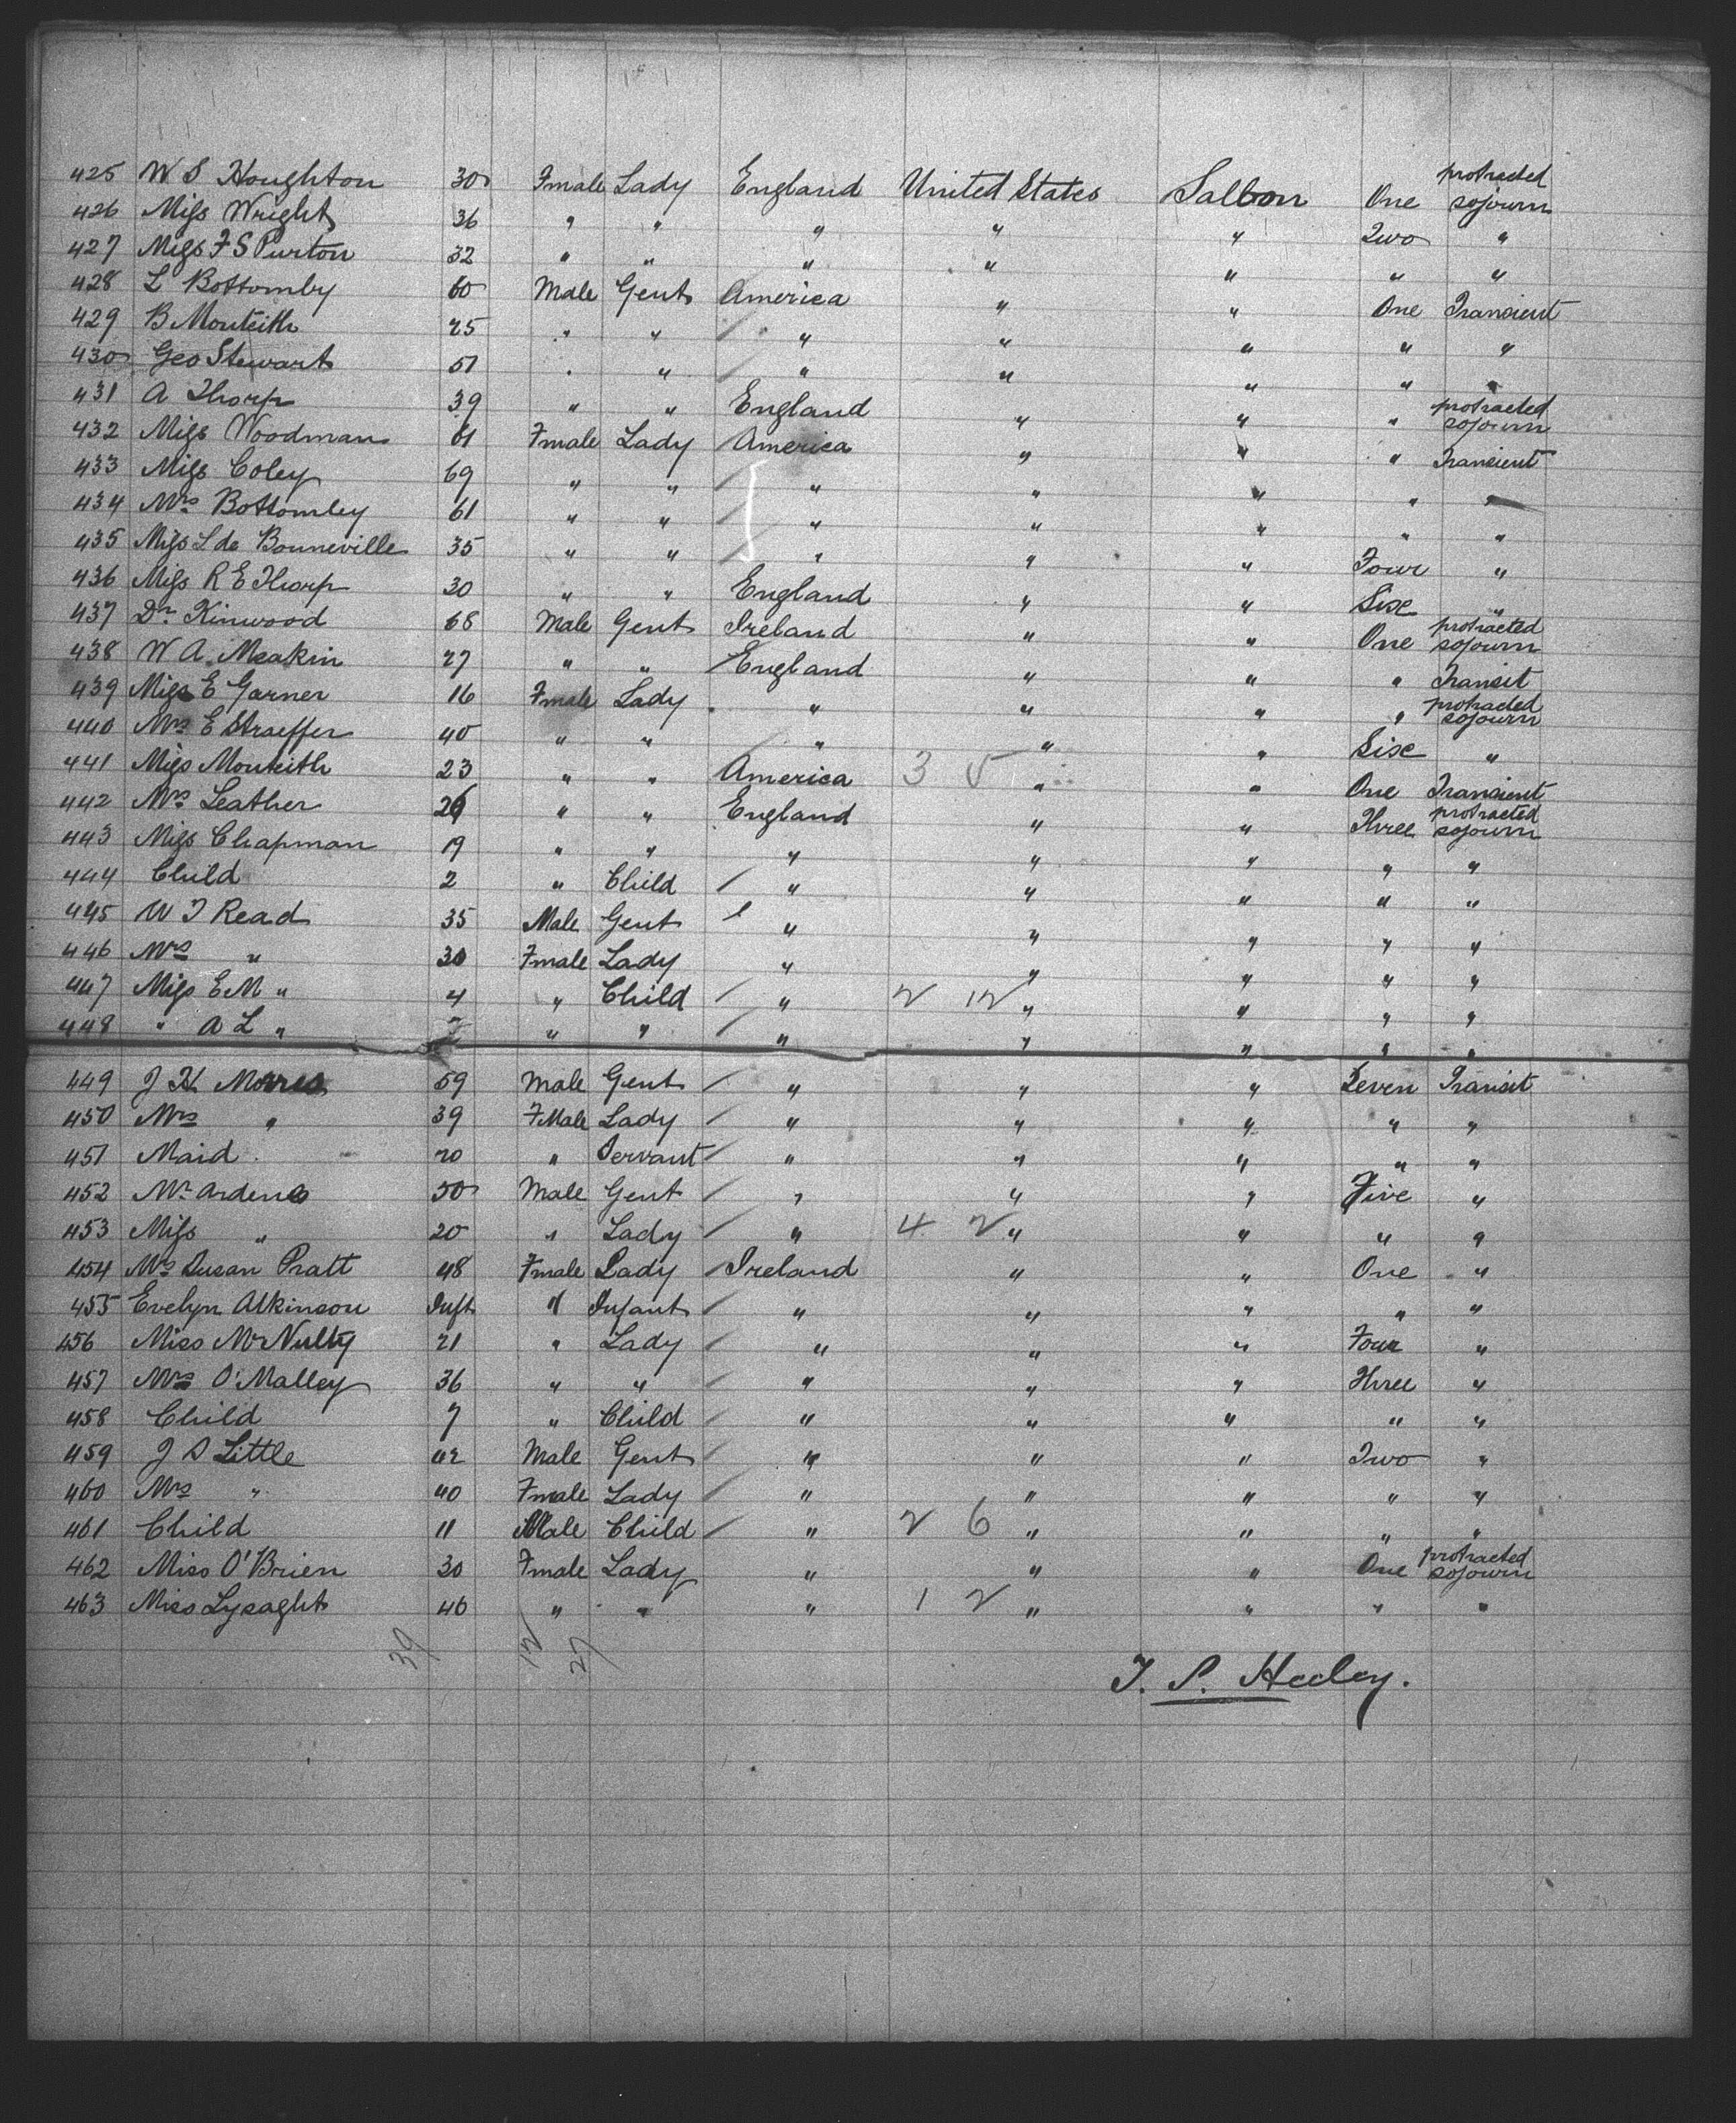 425 W S Houghton 30 Fmale Lady England United States Saloon One protracted sojourn
426 Miss Wright 36 " " " " " Two "
427 Miss F S Purton 32 " " " " " " "
428 L Bottomby 60 Male Gent America " " One Transient
429 B Monteith 25 " " " " " " "
430 Geo Stewart 51 " " " " " " "
431 A Thorp 39 " " England " " " protracted sojourn
432 Miss Woodman 61 Fmale Lady America " " " Transient
433 Miss Coley 69 " " " " " " "
434 Mrs Bottomley 61 " " " " " " "
435 Miss L de Bonneville 35 " " " " " Four "
436 Miss R E Thorp 30 " " England " " Six "
437 Dr. Kinwood 68 Male Gent Ireland " " One protracted sojourn
438 W A Meakin 27 " " England " " " Transit
439 Miss E Garner 16 Fmale Lady " " " " protracted sojourn
440 Mrs E Straeffer 40 " " " " " Six "
441 Miss Monteith 23 " " America 3 5 " " One Transient
442 Mrs Leather 26 " " England " " Three protracted sojourn
443 Miss Chapman 19 " " " " " " "
444 Child 2 " Child " " " " "
445 W T Read 35 Male Gent " " " " "
446 Mrs " 30 Fmale Lady " " " " "
447 Miss E M " 4 " Child " 2 12 " " " "
448 " A L " " " " " " " "
449 J H Morris 59 Male Gent " " " Seven Transit
450 Mrs " 39 FMale Lady " " " " "
451 Maid 20 " Servant " " " " "
452 Mr Ardene 50 Male Gent " " " Five "
453 Miss " 20 " Lady " 4 2 " " " "
454 Mrs Susan Pratt 48 Fmale Lady Ireland " " One "
455 Evelyn Atkinson Inft " Infant " " " " "
456 Miss McNulty 21 " Lady " " " Four "
457 Mrs O'Malley 36 " " " " " Three "
458 Child 7 " Child " " " " "
459 J S Little 42 Male Gent " " " Two "
460 Mrs " 40 Fmale Lady " " " " "
461 Child 11 Male Child " 2 6 " " " "
462 Miss O'Brien 30 Fmale Lady " " " One protracted sojourn
463 Miss Lysaght 40 " " " 1 2 " " " "
39 12 27
T. S. Heeley.